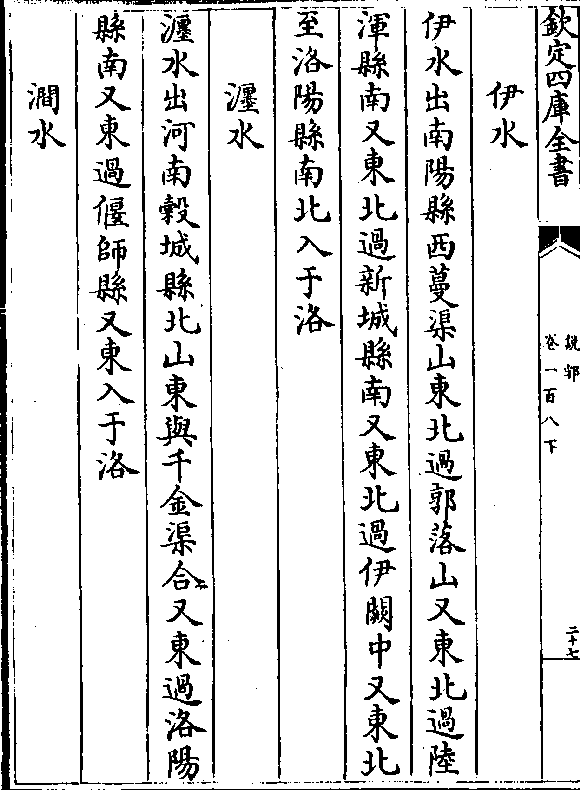 欽定四庫全書
說郛
卷一百八下
二十七
伊水
伊水出南陽縣西蔓渠山東北過郭落山又東北過陸
渾縣南又東北過新城縣南又東北過伊闕中又東北
至洛陽縣南北入于洛
瀍水
瀍水出河南穀城縣北山東與千金渠合又東過洛陽
縣南又東過偃師縣又東入于洛
澗水